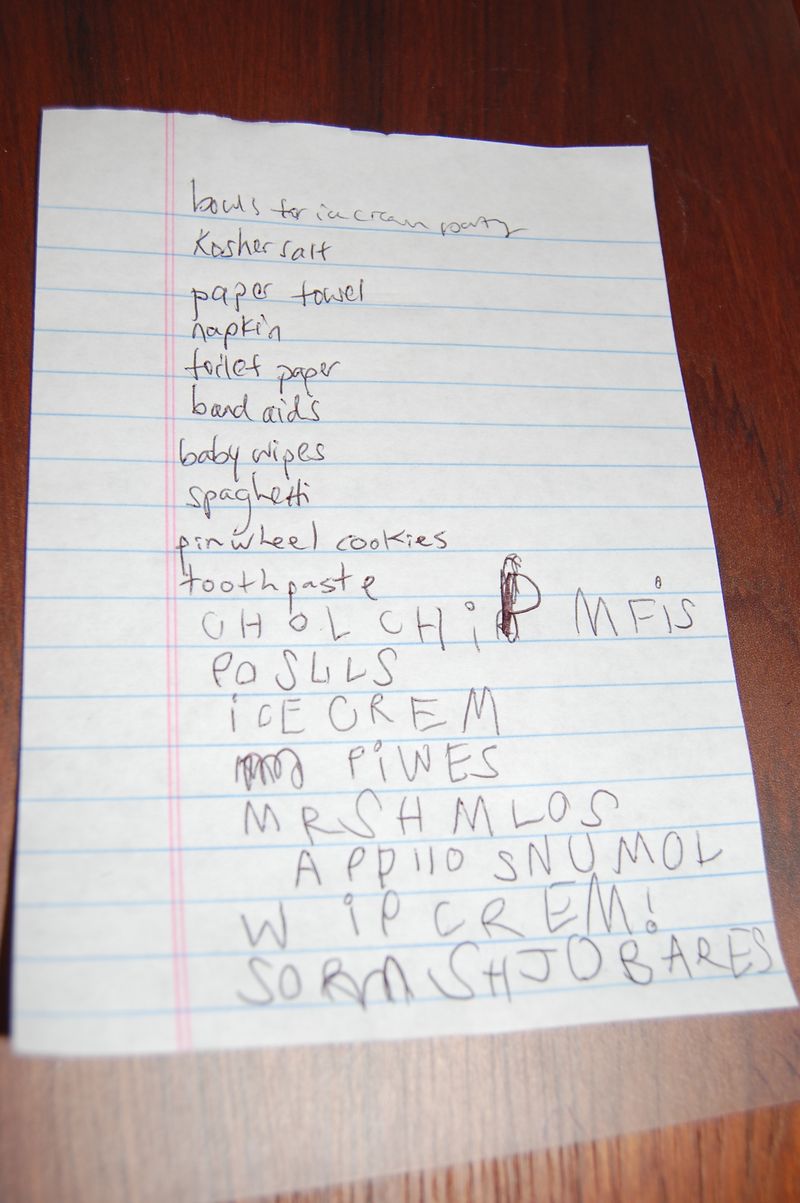 bowls for ice cream party
Kosher salt
paper towel
napkin
toilet paper
band aids
baby wipes
spaghetti
pinwheel cookies
toothpaste
CHOL CHiP MFiS
POSLLS
iCE CREM
PiWES
MRSHMLOS
APPllO SNUMOL
W iP CREM!
SORM SHJOBARES